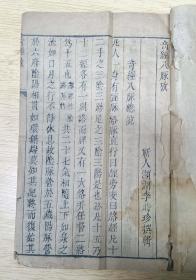 奇經八脈攷
蘄人瀕湖李時珍撰輯
奇經八脈總說
凡人一身有經脈絡脈直行曰經旁支曰絡經凡十
二手之三陰三陽足之三陰三陽是也絡凡十五乃
十二經各有一別絡而脾又有一大絡并任督二絡
為十五也 共二十七氣相隨上下如泉之
流如日月之行不得休息故陰脈營於五臟陽脈營
於六腑陰陽相貫如環無端莫知其紀終而復始其